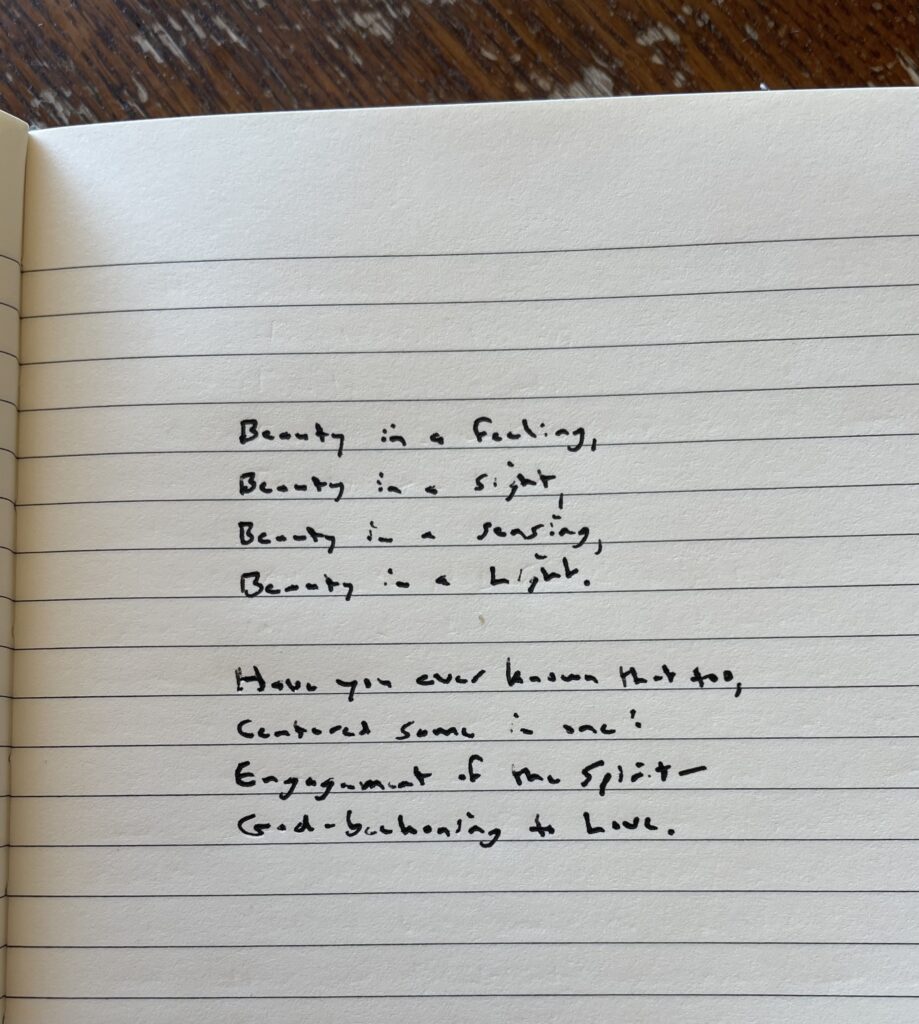 Beauty in a feeling,
Beauty in a sight,
Beauty in a sensing,
Beauty in a Light.
Have you ever known that too,
Centered some in one:
Engagement of the Spirit—
God-beckoning to Love.